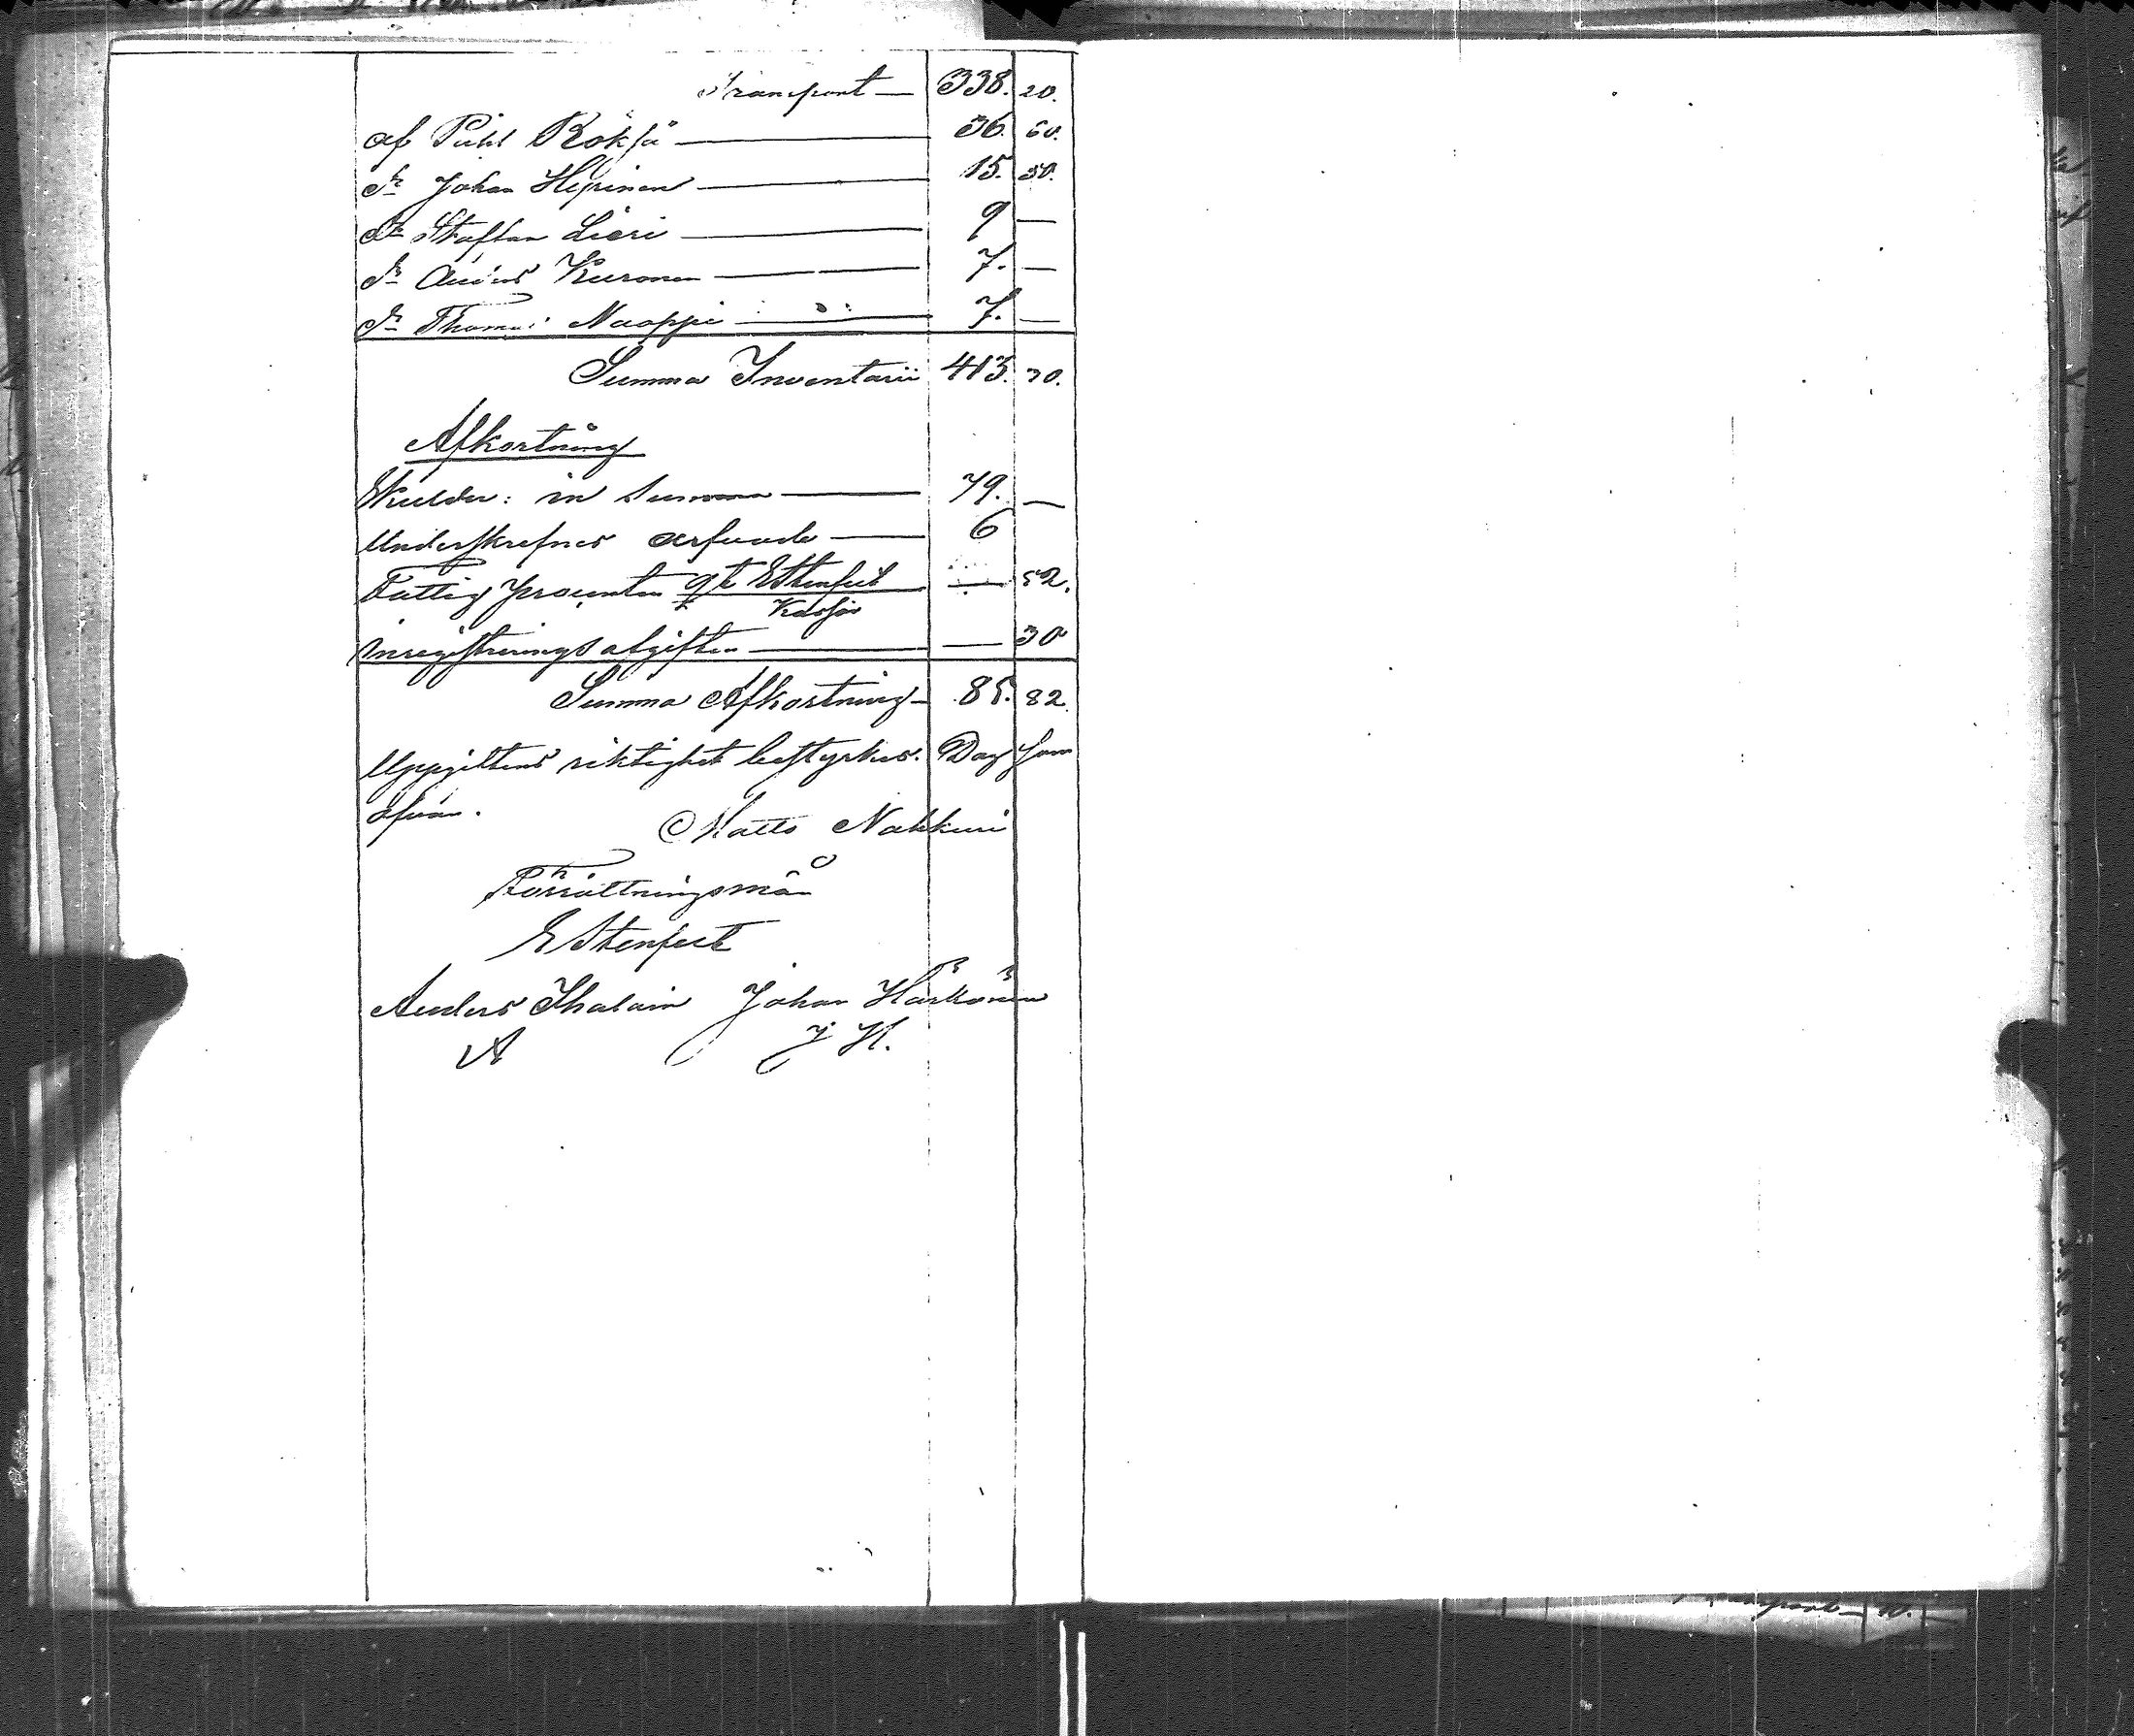 Transport — 338. 20.
af Påhl Röksä — 36. 60.
dr Johan Heprinen — 15. 50.
dr Staffan Lieri — 9 —
dr Anders Kuronen — 7. —
dr Thomas Naappi — 7. —
Summa Inventarii 413. 30.
Afkortning
Skulder: in Summa — 79. —
Underskrefnes arfvode — 6
Fattig procenten qt EStenfeet — 52.
Kassör
inregistrings afgiften — 30
Summa Afkortning — 85. 82
Uppgiftens riktighet bestyrkes. Dag som
ofvan.
Matts Nakkuri
Förrättningsmän
EStenfeet
Anders Ihalain Johan Härkönen
A J H.